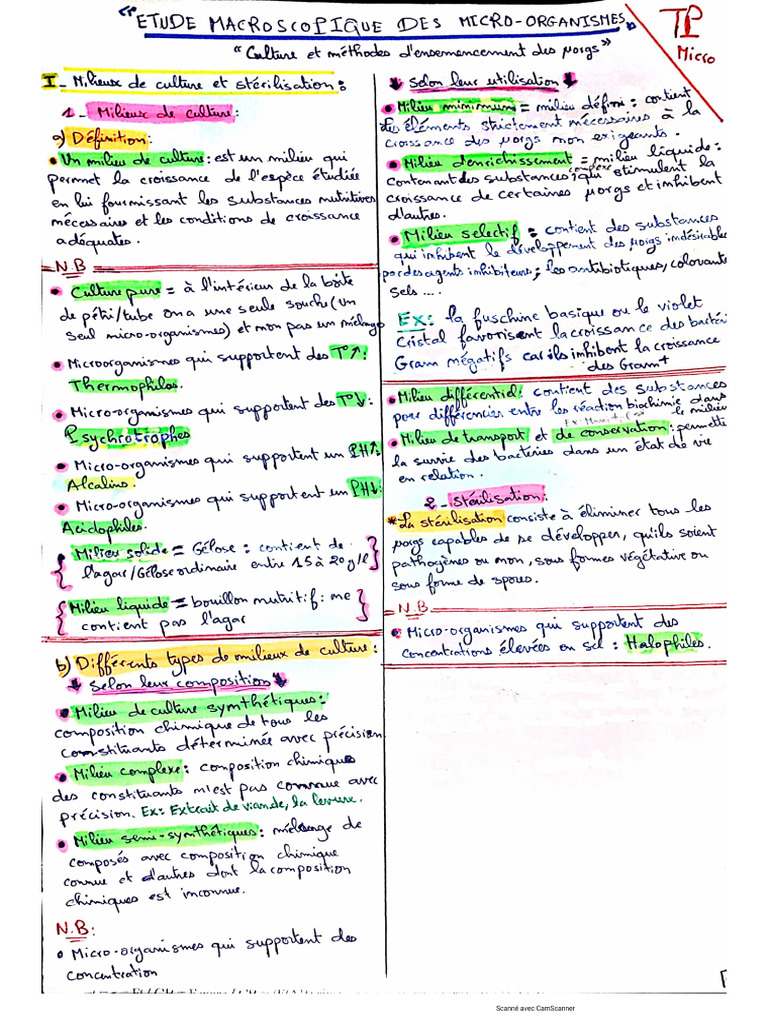 "ETUDE MACROSCOPIQUE DES MICRO-ORGANISMES"
"Culture et méthodes d'ensemencement des µorgs"
TP
Micro
I_ Milieux de culture et stérilisation:
1_ Milieux de culture:
a) Définition:
• Un milieu de culture: est un milieu qui
permet la croissance de l'espèce étudiée
en lui fournissant les substances nutritives
nécessaires et les conditions de croissance
adéquates.
N.B
• Culture pure = à l'intérieur de la boîte
de pétri/tube on a une seule souche (un
seul micro-organismes) et non pas un mélange
• Microorganismes qui supportent des T°↑:
Thermophiles.
• Micro-organismes qui supportent des T°↓:
Psychrotrophes
• Micro-organismes qui supportent un PH↑:
Alcalins.
• Micro-organismes qui supportent un PH↓:
Acidophiles.
Milieu solide = Gélose: contient de
l'agar/Gélose ordinaire entre 15 à 20g/l
Milieu liquide = bouillon nutritif: ne
contient pas l'agar
b) Différents types de milieux de culture:
↓ Selon leur composition ↓
• Milieu de culture synthétiques:
composition chimique de tous les
constituants déterminée avec précision
• Milieu complexe: composition chimiques
des constituants n'est pas connue avec
précision. Ex: Extrait de viande, la levure.
• Milieu semi-synthétiques: mélange de
composés avec composition chimique
connue et d'autres dont la composition
chimiques est inconnue.
N.B:
• Micro-organismes qui supportent des
concentration
↓ Selon leur utilisation ↓
• Milieu minimum = milieu défini: contient
des éléments strictement nécessaires à la
croissance des µorgs non exigeants.
• Milieu d'enrichissement = milieu liquide:
contenant des substances qui stimulent la
croissance de certaines µorgs et inhibent
d'autres.
• Milieu selectif = contient des substances
qui inhibent le développement des µorgs indésirable
par des agents inhibiteurs; les antibiotiques, colorants
sels ....
Ex: la fuschine basique ou le violet
cristal favorisent la croissance des bactéri
Gram négatifs car ils inhibent la croissance
des Gram+
• Milieu différentiel: contient des substances
pour différencier entre les réaction biochimie dans
le milieu
• Milieu de transport et de conservation: permette
la survie des bacteries dans un état de vie
en relation.
2_ Stérilisation:
* La stérilisation consiste à éliminer tous les
µorgs capables de se développer, qu'ils soient
pathogènes ou non, sous formes végétative ou
sous forme de spores.
N.B
• Micro-organismes qui supportent des
concentrations élevées en sel: Halophiles.
Scanné avec CamScanner